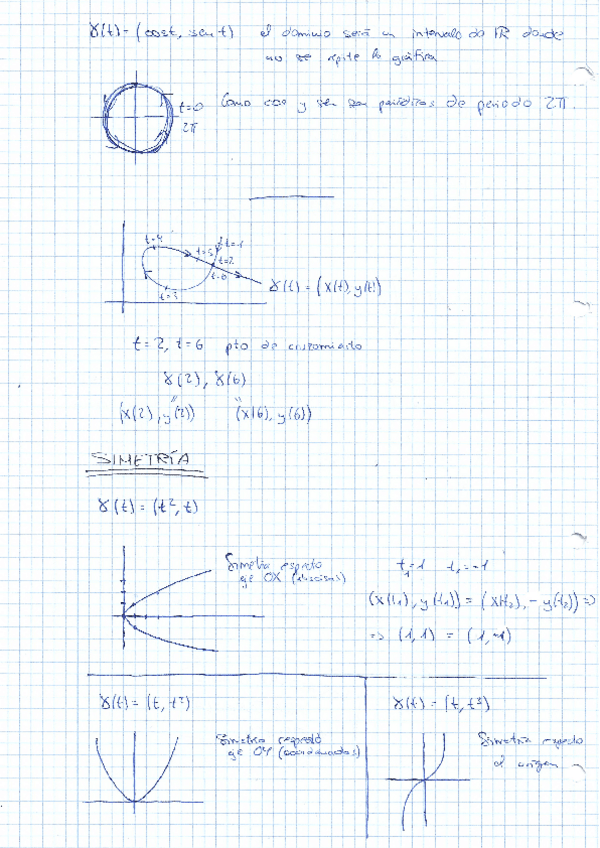 γ(t) = (cost, sent) el dominio será un intervalo de IR donde
no se repite la gráfica
t=0
2π
Como cos y sen son periódicas de periodo 2π.
t=4
t=5
t=1
t=2
t=0
t=3
γ(t) = (x(t), y(t))
t=2, t=6 pto de cruzamiento
γ(2), γ(6)
(x(2), y(2)) (x(6), y(6))
SIMETRÍA
γ(t) = (t², t)
Simetría respecto
eje OX (abscisas)
t₁=1 t₂=-1
(x(t₁), y(t₁)) = (x(t₂), -y(t₂)) =>
=> (1,1) = (1,-1)
γ(t) = (t, t²)
Simetría respecto
eje OY (coordenadas)
γ(t) = (t, t³)
Simetría respecto
al origen